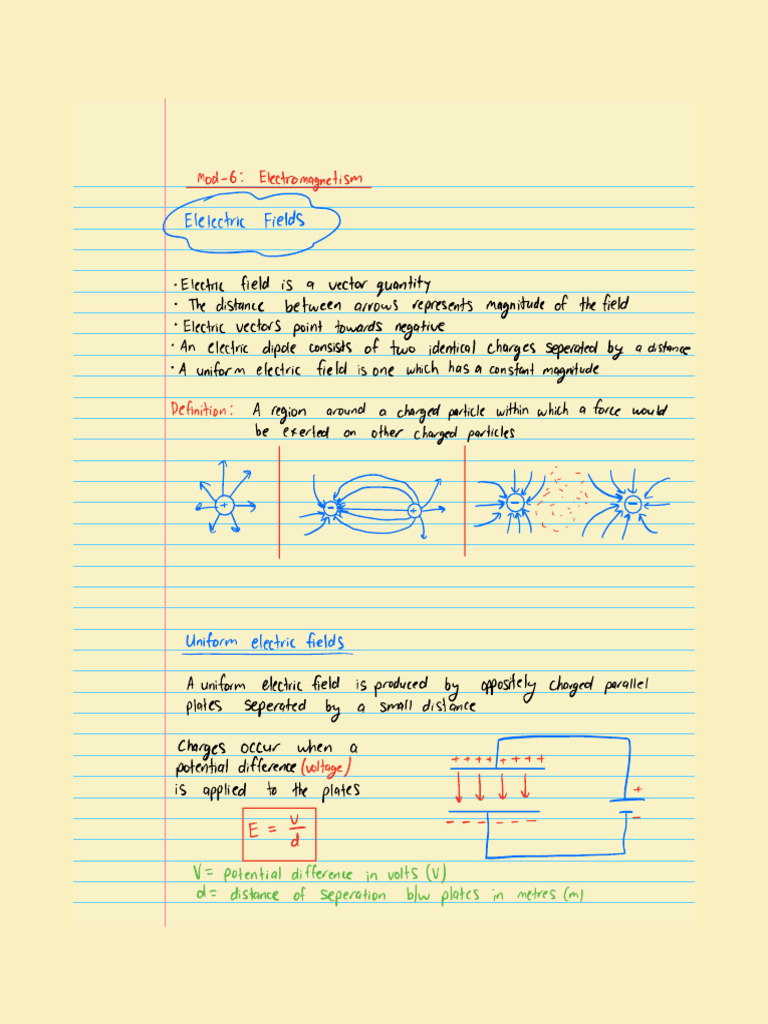 Mod-6: Electromagnetism
Elelectric Fields
· Electric field is a vector quantity
· The distance between arrows represents magnitude of the field
· Electric vectors point towards negative
· An electric dipole consists of two identical charges seperated by a distance
· A uniform electric field is one which has a constant magnitude
Definition: A region around a charged particle within which a force would
be exerted on other charged particles
+ - + - -
Uniform electric fields
A uniform electric field is produced by oppositely charged parallel
plates seperated by a small distance
Charges occur when a
potential difference (voltage)
is applied to the plates
+ + + + + + + +
+
- - - - - - -
-
E = V/d
V = potential difference in volts (V)
d = distance of seperation b/w plates in metres (m)